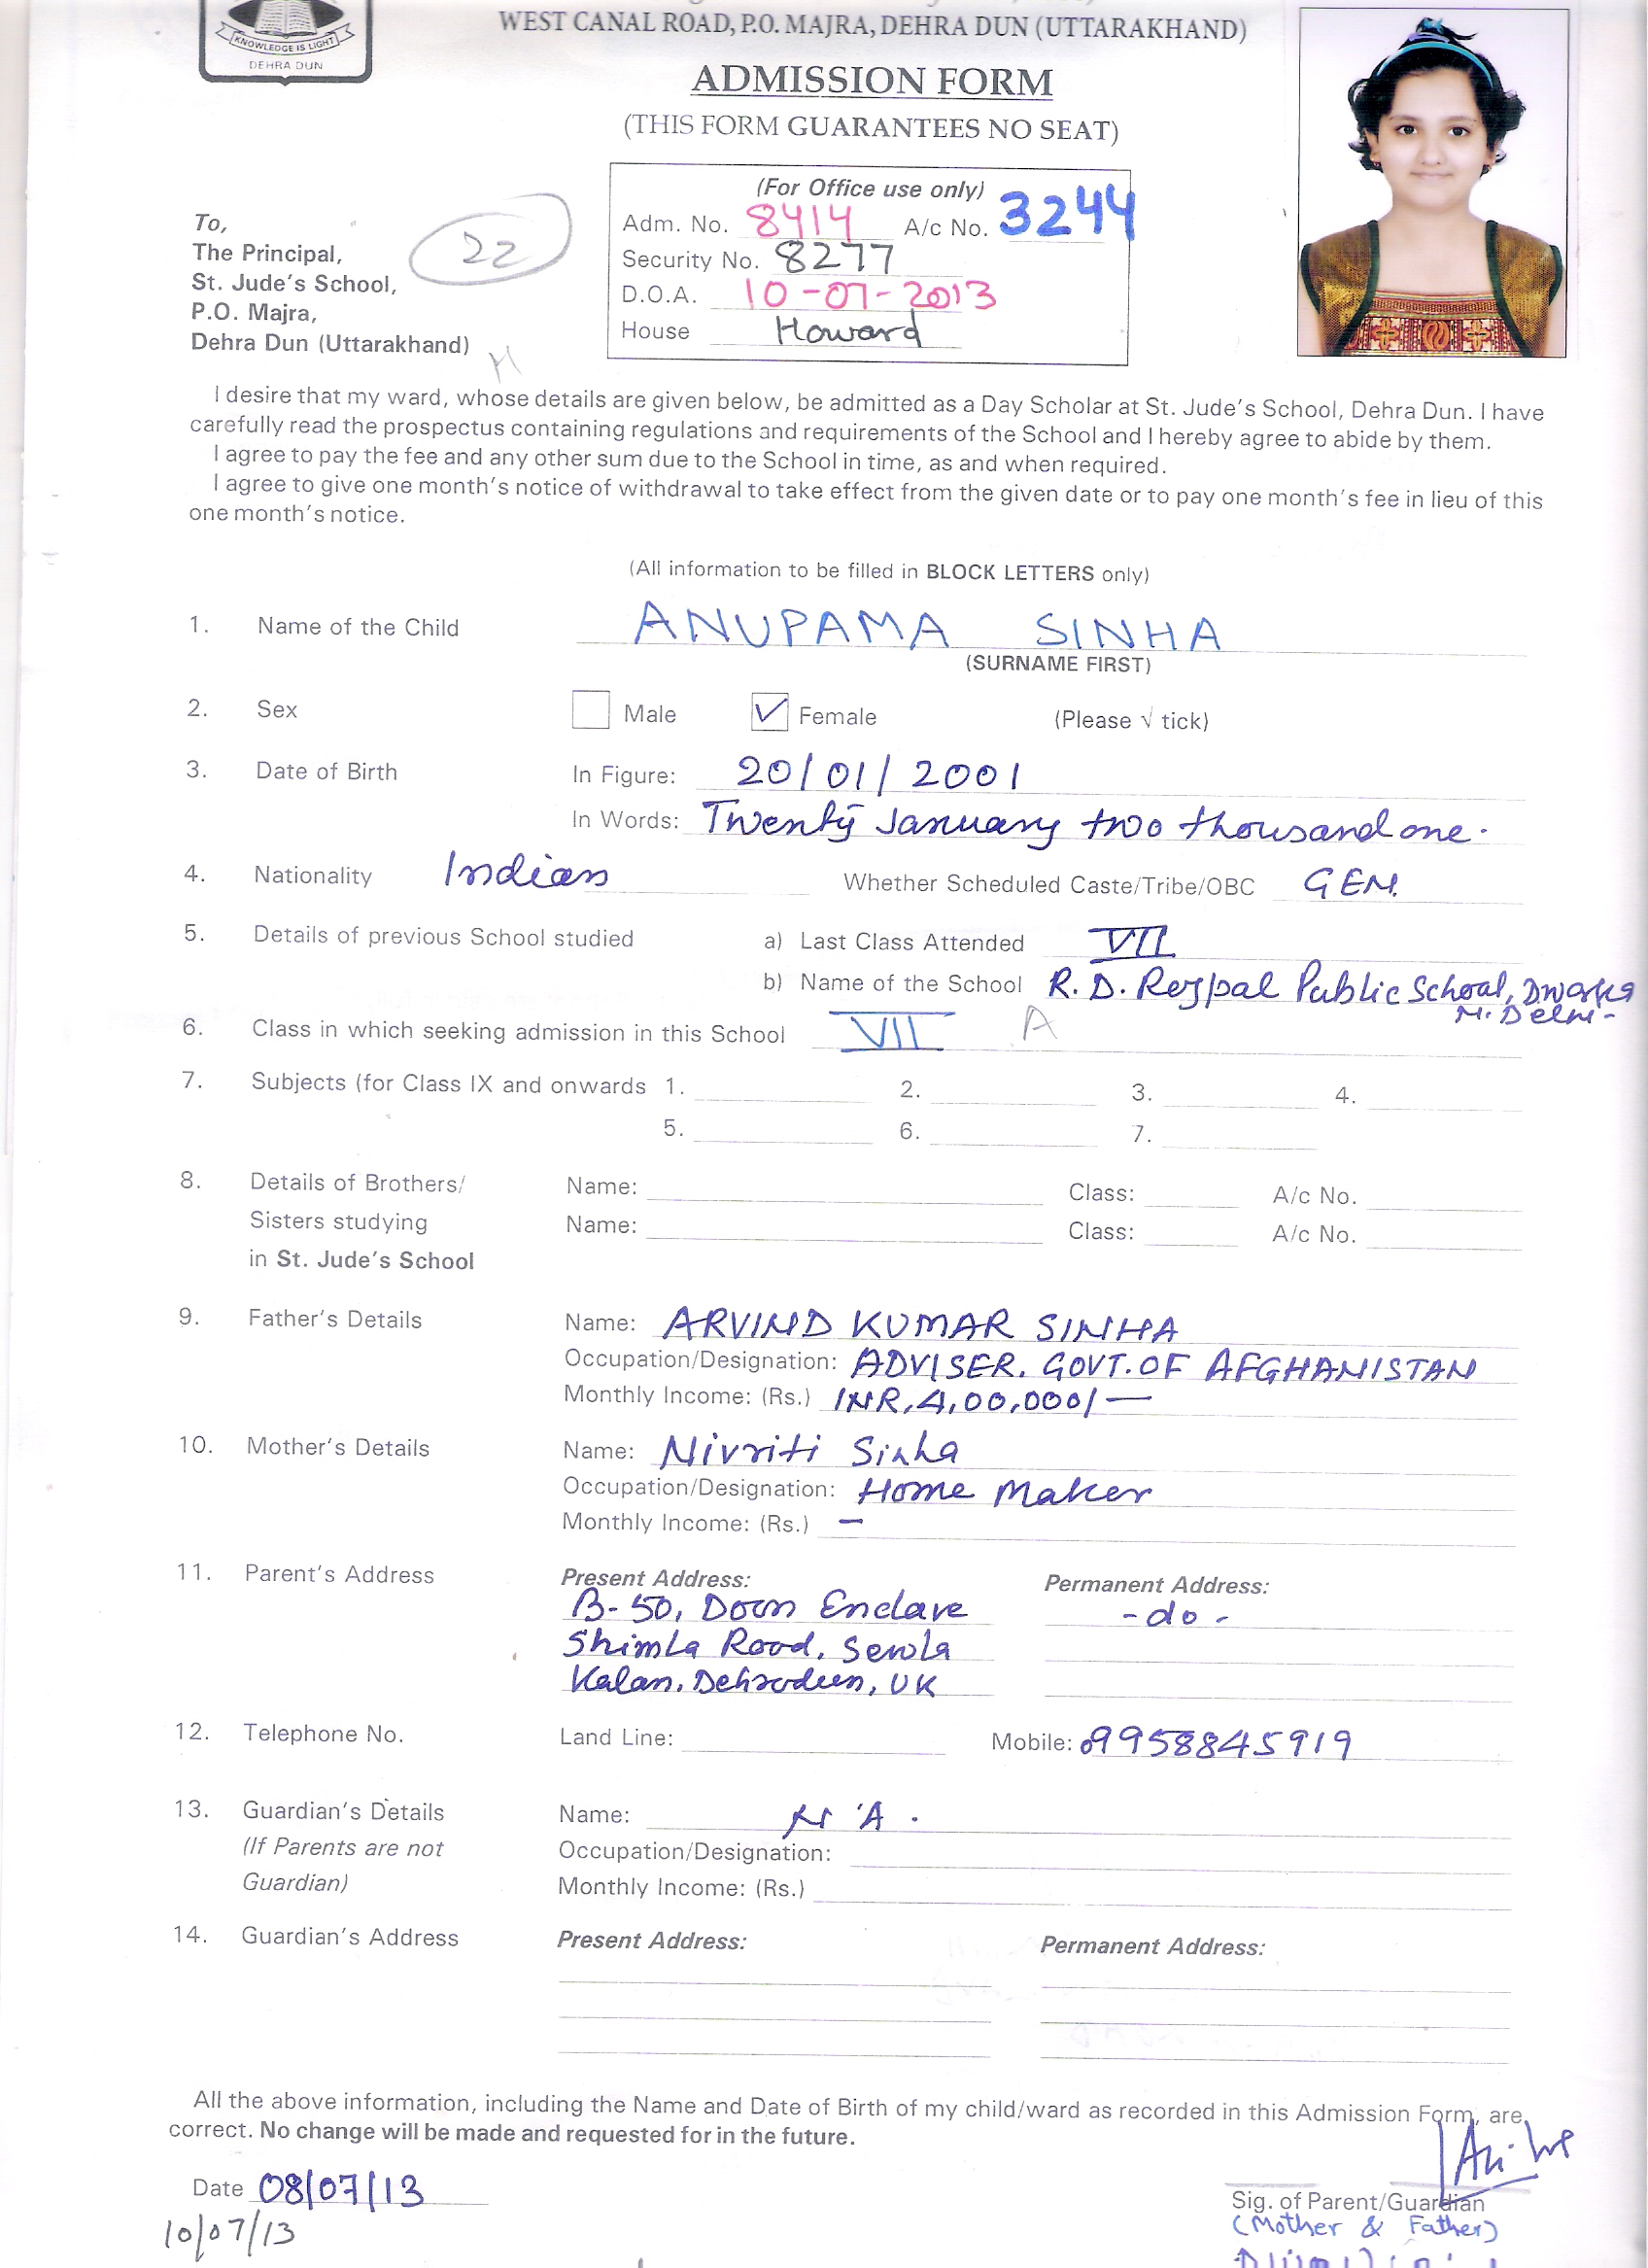 WEST CANAL ROAD, P.O. MAJRA, DEHRA DUN (UTTARAKHAND)
KNOWLEDGE IS LIGHT
DEHRA DUN
ADMISSION FORM
(THIS FORM GUARANTEES NO SEAT)
(For Office use only)
Adm. No. 8414 A/c No. 3244
Security No. 8277
D.O.A. 10-07-2013
House Howard
To,
The Principal,
St. Jude's School,
P.O. Majra,
Dehra Dun (Uttarakhand)
22
M
I desire that my ward, whose details are given below, be admitted as a Day Scholar at St. Jude's School, Dehra Dun. I have
carefully read the prospectus containing regulations and requirements of the School and I hereby agree to abide by them.
I agree to pay the fee and any other sum due to the School in time, as and when required.
I agree to give one month's notice of withdrawal to take effect from the given date or to pay one month's fee in lieu of this
one month's notice.
(All information to be filled in BLOCK LETTERS only)
1. Name of the Child ANUPAMA SINHA
(SURNAME FIRST)
2. Sex Male ✓ Female (Please √ tick)
3. Date of Birth In Figure: 20/01/2001
In Words: Twenty January two thousand one.
4. Nationality Indian Whether Scheduled Caste/Tribe/OBC GEN.
5. Details of previous School studied a) Last Class Attended VII
b) Name of the School R. D. Rajpal Public School, Dwarka
N. Delhi-
6. Class in which seeking admission in this School VII A
7. Subjects (for Class IX and onwards 1. 2. 3. 4.
5. 6. 7.
8. Details of Brothers/ Name: Class: A/c No.
Sisters studying Name: Class: A/c No.
in St. Jude's School
9. Father's Details Name: ARVIND KUMAR SINHA
Occupation/Designation: ADVISER. GOVT. OF AFGHANISTAN
Monthly Income: (Rs.) INR. 4,00,000/-
10. Mother's Details Name: Nivriti Sinha
Occupation/Designation: Home Maker
Monthly Income: (Rs.) -
11. Parent's Address Present Address: Permanent Address:
B-50, Doon Enclave -do-
Shimla Road, Sewla
Kalan, Dehradun, UK
12. Telephone No. Land Line: Mobile: 09958845919
13. Guardian's Details Name: N A .
(If Parents are not Occupation/Designation:
Guardian) Monthly Income: (Rs.)
14. Guardian's Address Present Address: Permanent Address:
All the above information, including the Name and Date of Birth of my child/ward as recorded in this Admission Form, are
correct. No change will be made and requested for in the future.
Date 08/07/13
10/07/13
Sig. of Parent/Guardian
(Mother & Father)